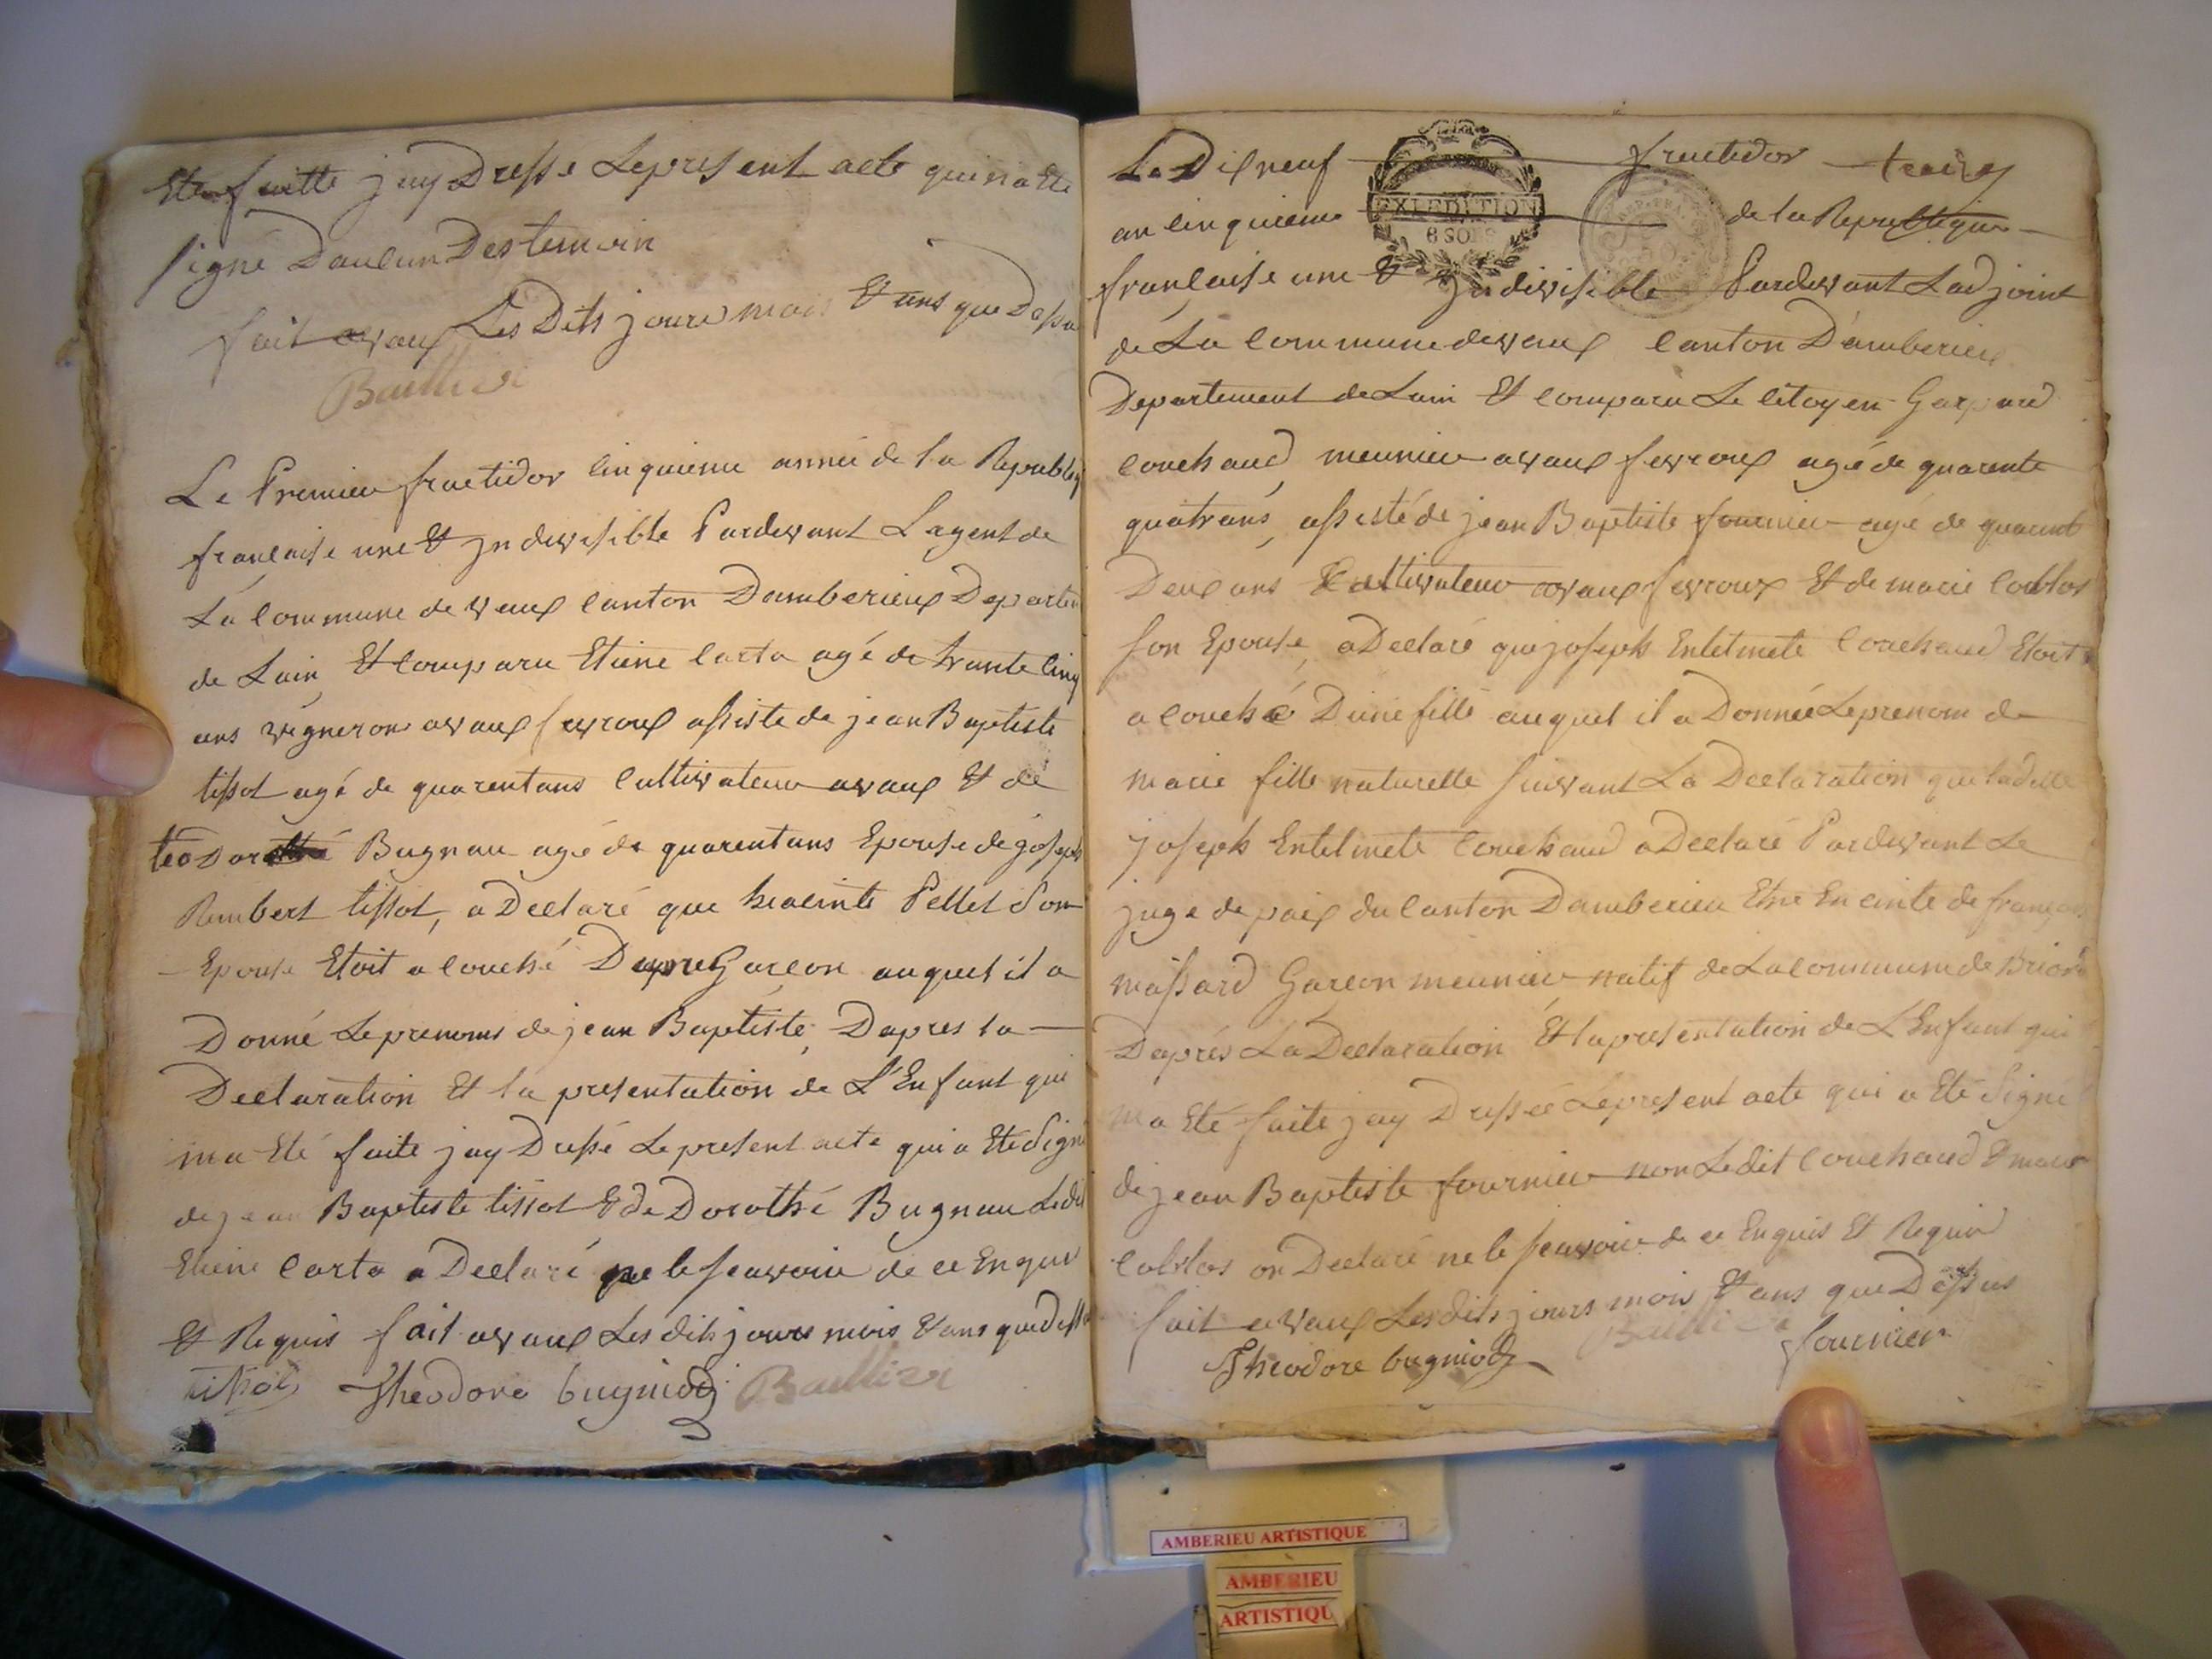 Et En suitte jay Dressé Le present acte qui na Eté
signé Daucun Des temoin
fait avaux Les Dits jours mois Et ans que Dessu
Baillier
Le Premier fructidor cinquieme année de la Republiq
francaise une Et jndivisible Pardevant Lagent de
La Commune de vaux canton Damberieux Departem
de Lain Et comparu Etiene carta agé de trante cinq
ans vigneron avaux fevroux assisté de jean Baptiste
tissot agé de quarentans cultivateur avaux Et de
teodor Bugnau agé de quarentans Epouse de joseph
Rembert tissot, a Declaré que hiacinte Pellet Son
Epouse Etoit acouché Garcon auquel il a
Donné Le prenoms de jean Baptiste, Dapres la
Declaration Et la presentation de L'Enfant qui
ma Eté faite jay Dressé Le present acte qui a Eté Signé
de jean Baptiste tissot Et de Dorothé Bugnau Ledit
Etiene Carta a Declaré ne le scavoir de ce Enquis
Et Requis fait avaux Les dits jours mois Et ans que dess
tissot Theodore bugniod Baillier
Le Dixneuf fructidor
EXPEDITION
6 SOLS
an cinquieme de la Republique
francaise une Et jndivisible Pardevant Ladjoint
de La Commune devaux canton D'amberieux
Departement de Lain Et comparu Le citoyen Gaspard
couchaud, meunier avaux fevroux agé de quarente
quatrans, assisté de jean Baptiste fournier agé de quarent
Deux ans Cultivateur avaux fevroux Et de marie
son Epouse, a Declaré que joseph Couchaud Etoit
acouché D'une fille auquel il a Donnée Le prenom de
marie fille naturelle suivant La Declaration que ladite
joseph couchaud a Declaré Pardevant Le
juge de paix du canton Damberieu Etre Enceinte de francois
massard Garcon meunier natif de La commune de Briord
Daprés La Declaration Et la presentation de L'Enfant qui
ma Eté faite jay Dressée Le present acte qui a Eté Signé
de jean Baptiste fournier non Ledit Couchaud Et marie
on Declaré ne le scavoir de ce Enquis Et Requis
fait avaux Les dits jours mois Et ans que Dessus
Baillier
Theodore bugniod fournier
AMBERIEU ARTISTIQUE
AMBERIEU
ARTISTIQU